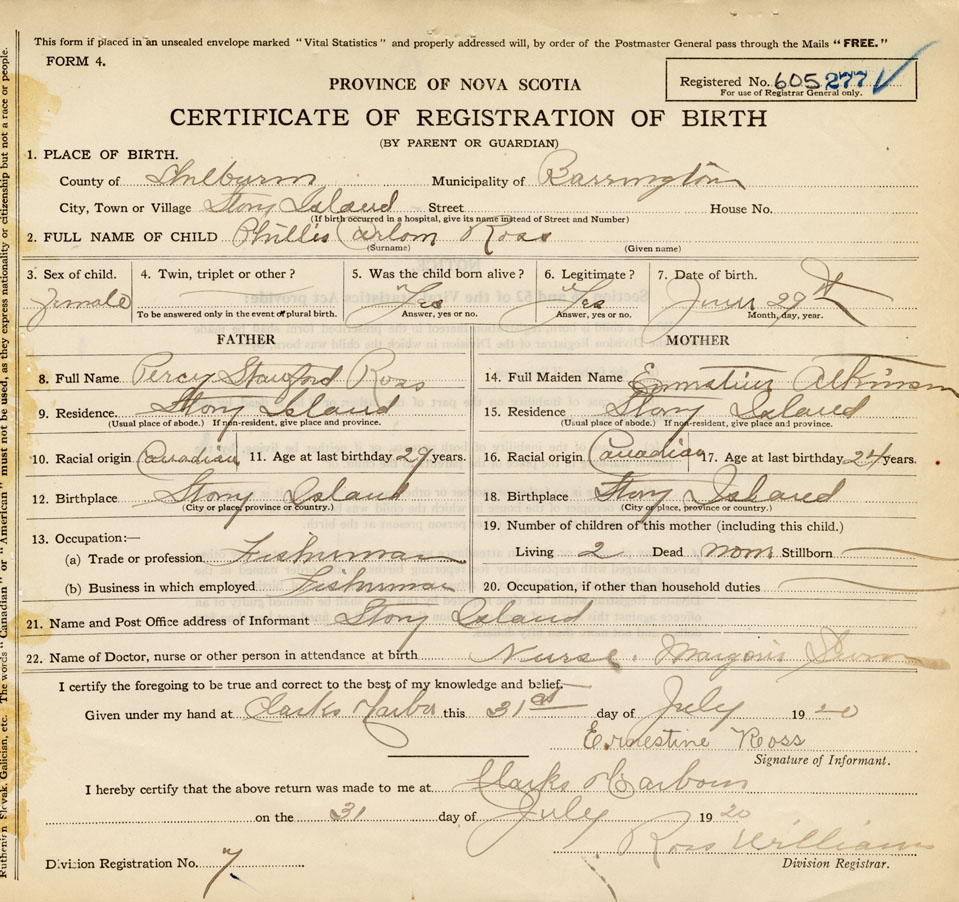 This form if placed in an unsealed envelope marked "Vital Statistics" and properly addressed will, by order of the Postmaster General pass through the Mails "FREE."
FORM 4.
Registered No. 605277
For use of Registrar General only.
PROVINCE OF NOVA SCOTIA
CERTIFICATE OF REGISTRATION OF BIRTH
(BY PARENT OR GUARDIAN)
1. PLACE OF BIRTH.
County of Shelburn Municipality of Barrington
City, Town or Village Stony Island Street House No.
(If birth occurred in a hospital, give its name instead of Street and Number)
2. FULL NAME OF CHILD Phillis Ross
(Surname) (Given name)
3. Sex of child. 4. Twin, triplet or other? 5. Was the child born alive? 6. Legitimate? 7. Date of birth.
Female "Yes "Yes June 29th
To be answered only in the event of plural birth. Answer, yes or no. Answer, yes or no. Month, day, year.
FATHER MOTHER
8. Full Name Percy Ross 14. Full Maiden Name Atkinson
9. Residence. Stony Island 15. Residence Stony Island
(Usual place of abode.) If non-resident, give place and province. (Usual place of abode.) If non-resident, give place and province.
10. Racial origin Canadian 11. Age at last birthday 29 years. 16. Racial origin Canadian 17. Age at last birthday 24 years.
12. Birthplace Stony Island 18. Birthplace Stony Island
(City or place, province or country.) (City or place, province or country.)
19. Number of children of this mother (including this child.)
13. Occupation:—
(a) Trade or profession Fisherman Living 2 Dead Stillborn
(b) Business in which employed Fisherman 20. Occupation, if other than household duties
21. Name and Post Office address of Informant Stony Island
22. Name of Doctor, nurse or other person in attendance at birth Nurse.
I certify the foregoing to be true and correct to the best of my knowledge and belief.
Given under my hand at Clarks Harbor this 31st day of July 1920
Ernestine Ross
Signature of Informant.
I hereby certify that the above return was made to me at Clarks Harbour
on the 31 day of July 1920
Ross Williams
Division Registration No. 7 Division Registrar.
Ruthenian Slovak, Galician, etc. The words "Canadian" or "American" must not be used, as they express nationality or citizenship but not a race or people.